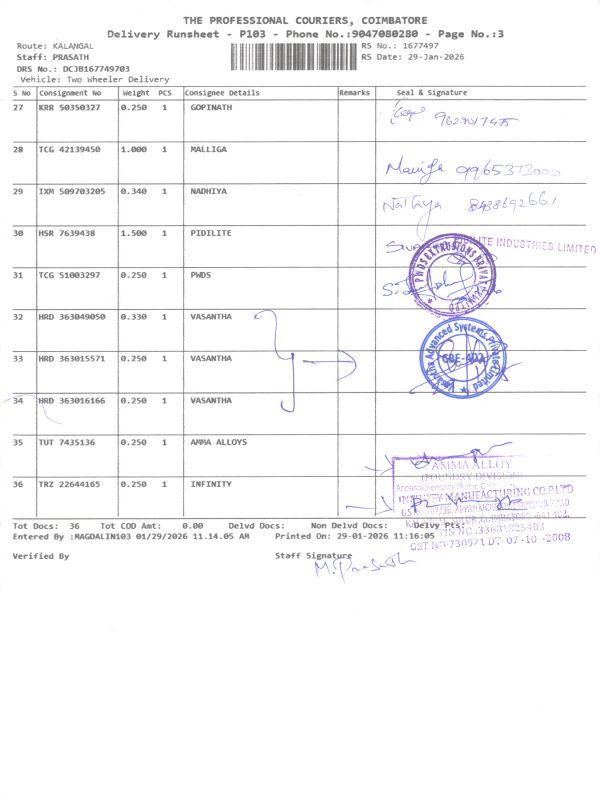 THE PROFESSIONAL COURIERS, COIMBATORE
Delivery Runsheet - P103 - Phone No.:9047080280 - Page No.:3
Route: KALANGAL RS No.: 1677497
Staff: PRASATH RS Date: 29-Jan-2026
DRS No.: DCJB167749703
Vehicle: Two Wheeler Delivery
S No Consignment No Weight PCS Consignee Details Remarks Seal & Signature
27 KRR 50350327 0.250 1 GOPINATH
28 TCG 42139450 1.000 1 MALLIGA
29 IXM 509703205 0.340 1 NADHIYA
30 HSR 7639438 1.500 1 PIDILITE
PIDILITE INDUSTRIES LIMITED
31 TCG 51003297 0.250 1 PWDS
PWDS EXTRUSIONS PRIVATE LIMITED
32 HRD 363049050 0.330 1 VASANTHA
Vasantha Advanced Systems Private Limited
33 HRD 363015571 0.250 1 VASANTHA
CBE-402
34 HRD 363016166 0.250 1 VASANTHA
35 TUT 7435136 0.250 1 AMMA ALLOYS
AMMA ALLOY
(FOUNDRY DIVISION)
36 TRZ 22644165 0.250 1 INFINITY
INFINITY MANUFACTURING CO.PLTD
Tot Docs: 36 Tot COD Amt: 0.00 Delvd Docs: Non Delvd Docs: Delvy Pts:
Entered By :MAGDALIN103 01/29/2026 11.14.05 AM Printed On: 29-01-2026 11:16:05
TIN NO.33681825403
GST NO-730921 DT-07-10-2008
Verified By Staff Signature
M. Prasath